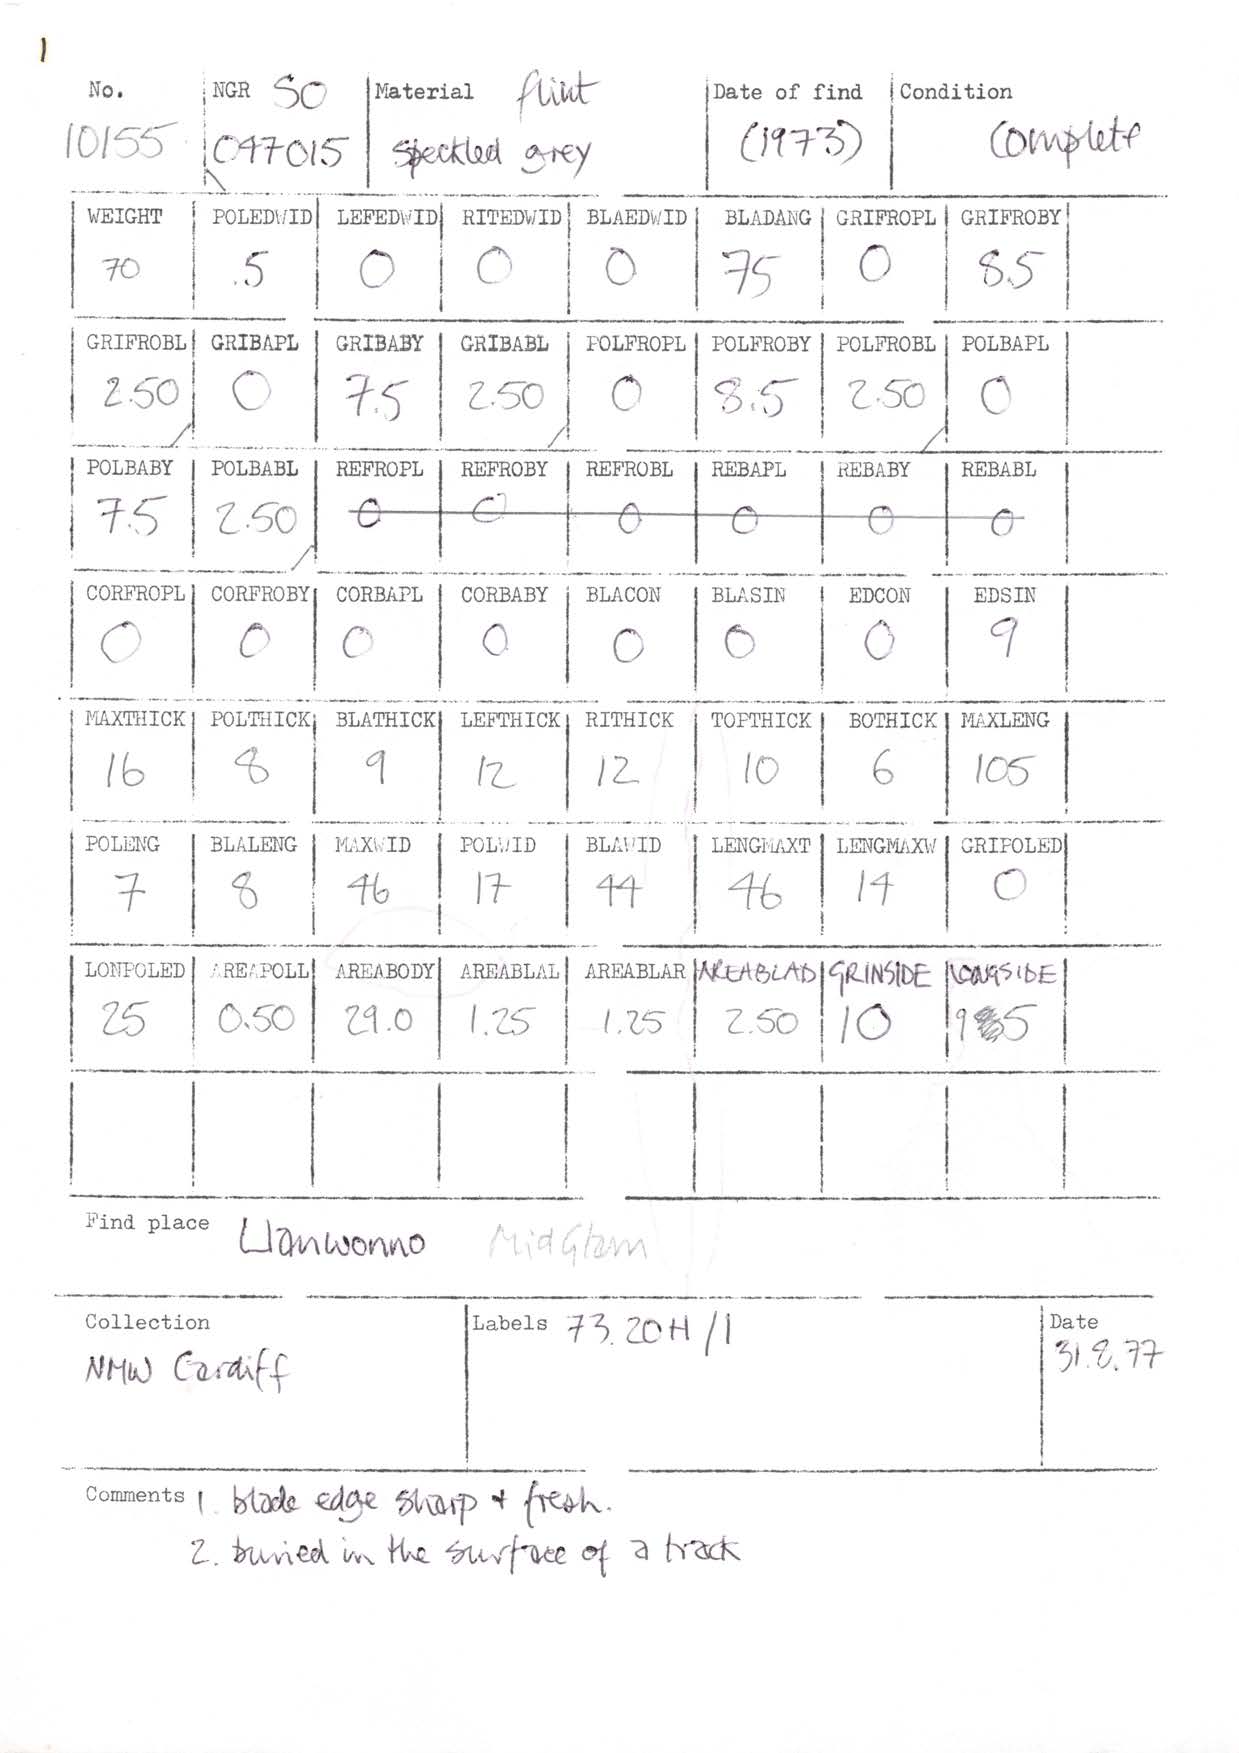 1
No. NGR SO Material flint Date of find Condition
10155 047015 speckled grey (1973) Complete
WEIGHT POLEDWID LEFEDWID RITEDWID BLAEDWID BLADANG GRIFROPL GRIFROBY
70 .5 0 0 0 75 0 8.5
GRIFROBL GRIBAPL GRIBABY GRIBABL POLFROPL POLFROBY POLFROBL POLBAPL
2.50 0 7.5 2.50 0 8.5 2.50 0
POLBABY POLBABL REFROPL REFROBY REFROBL REBAPL REBABY REBABL
7.5 2.50 0 0 0 0 0 0
CORFROPL CORFROBY CORBAPL CORBABY BLACON BLASIN EDCON EDSIN
0 0 0 0 0 0 0 9
MAXTHICK POLTHICK BLATHICK LEFTHICK RITHICK TOPTHICK BOTHICK MAXLENG
16 8 9 12 12 10 6 105
POLENG BLALENG MAXWID POLWID BLAWID LENGMAXT LENGMAXW GRIPOLED
7 8 46 17 44 46 14 0
LONPOLED AREAPOLL AREABODY AREABLAL AREABLAR AREABLAD GRINSIDE LONGSIDE
25 0.50 29.0 1.25 1.25 2.50 10 95
Find place Llanwonno Mid Glam
Collection Labels 73.20H/1 Date
NMW Cardiff 31.8.77
Comments 1. blade edge sharp + fresh.
2. buried in the surface of a track